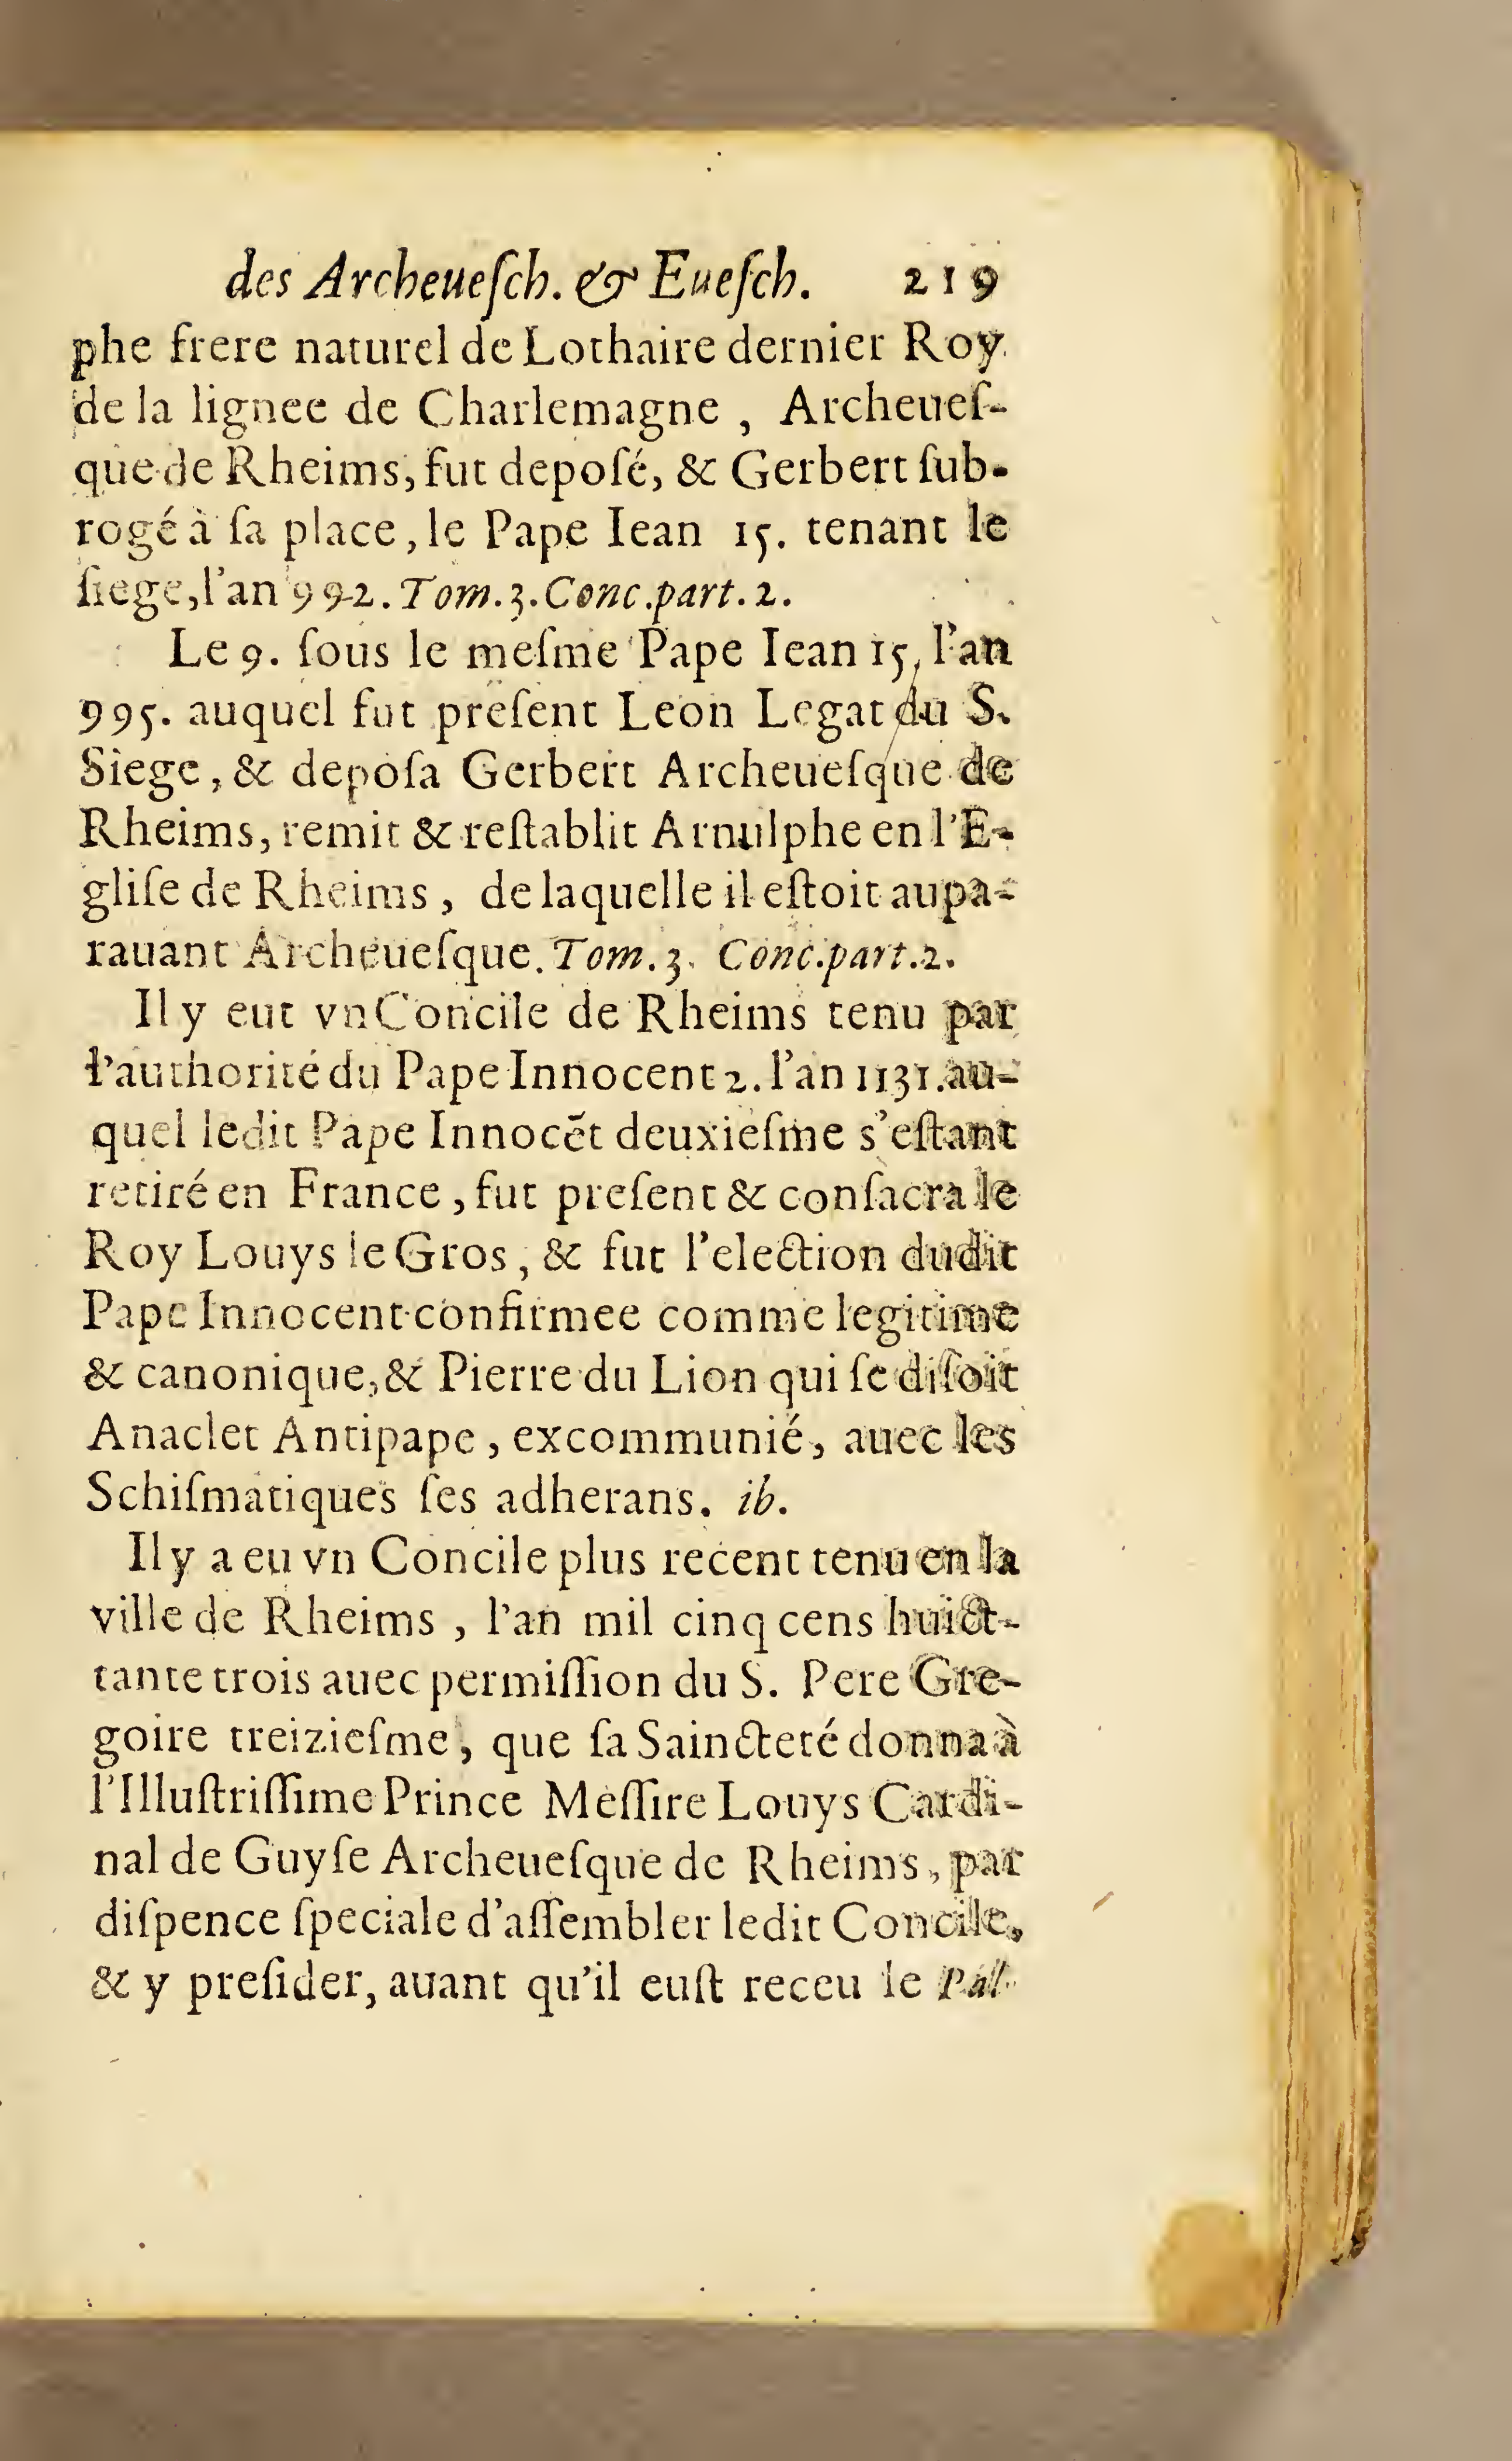 des Archeueſch. & Eueſch. 219
phe frere naturel de Lothaire dernier Roy
de la lignee de Charlemagne, Archeueſ-
que de Rheims, fut depoſé, & Gerbert ſub-
rogé à ſa place, le Pape Iean 15. tenant le
ſiege, l'an 992. Tom. 3. Conc. part. 2.
Le 9. ſous le meſme Pape Iean 15, l'an
995. auquel fut preſent Leon Legat du S.
Siege, & depoſa Gerbert Archeueſque de
Rheims, remit & reſtablit Arnulphe en l'E-
gliſe de Rheims, de laquelle il eſtoit aupa-
rauant Archeueſque. Tom. 3. Conc. part. 2.
Il y eut vn Concile de Rheims tenu par
l'authorité du Pape Innocent 2. l'an 1131. au-
quel ledit Pape Innocẽt deuxieſme s'eſtant
retiré en France, fut preſent & conſacra le
Roy Louys le Gros, & fut l'election dudit
Pape Innocent confirmee comme legitime
& canonique, & Pierre du Lion qui ſe diſoit
Anaclet Antipape, excommunié, auec les
Schiſmatiques ſes adherans. ib.
Il y a eu vn Concile plus recent tenu en la
ville de Rheims, l'an mil cinq cens huict-
tante trois auec permiſſion du S. Pere Gre-
goire treizieſme, que ſa Saincteté donna à
l'Illuſtriſſime Prince Meſſire Louys Cardi-
nal de Guyſe Archeueſque de Rheims, par
diſpence ſpeciale d'aſſembler ledit Concile,
& y preſider, auant qu'il euſt receu le Pal-